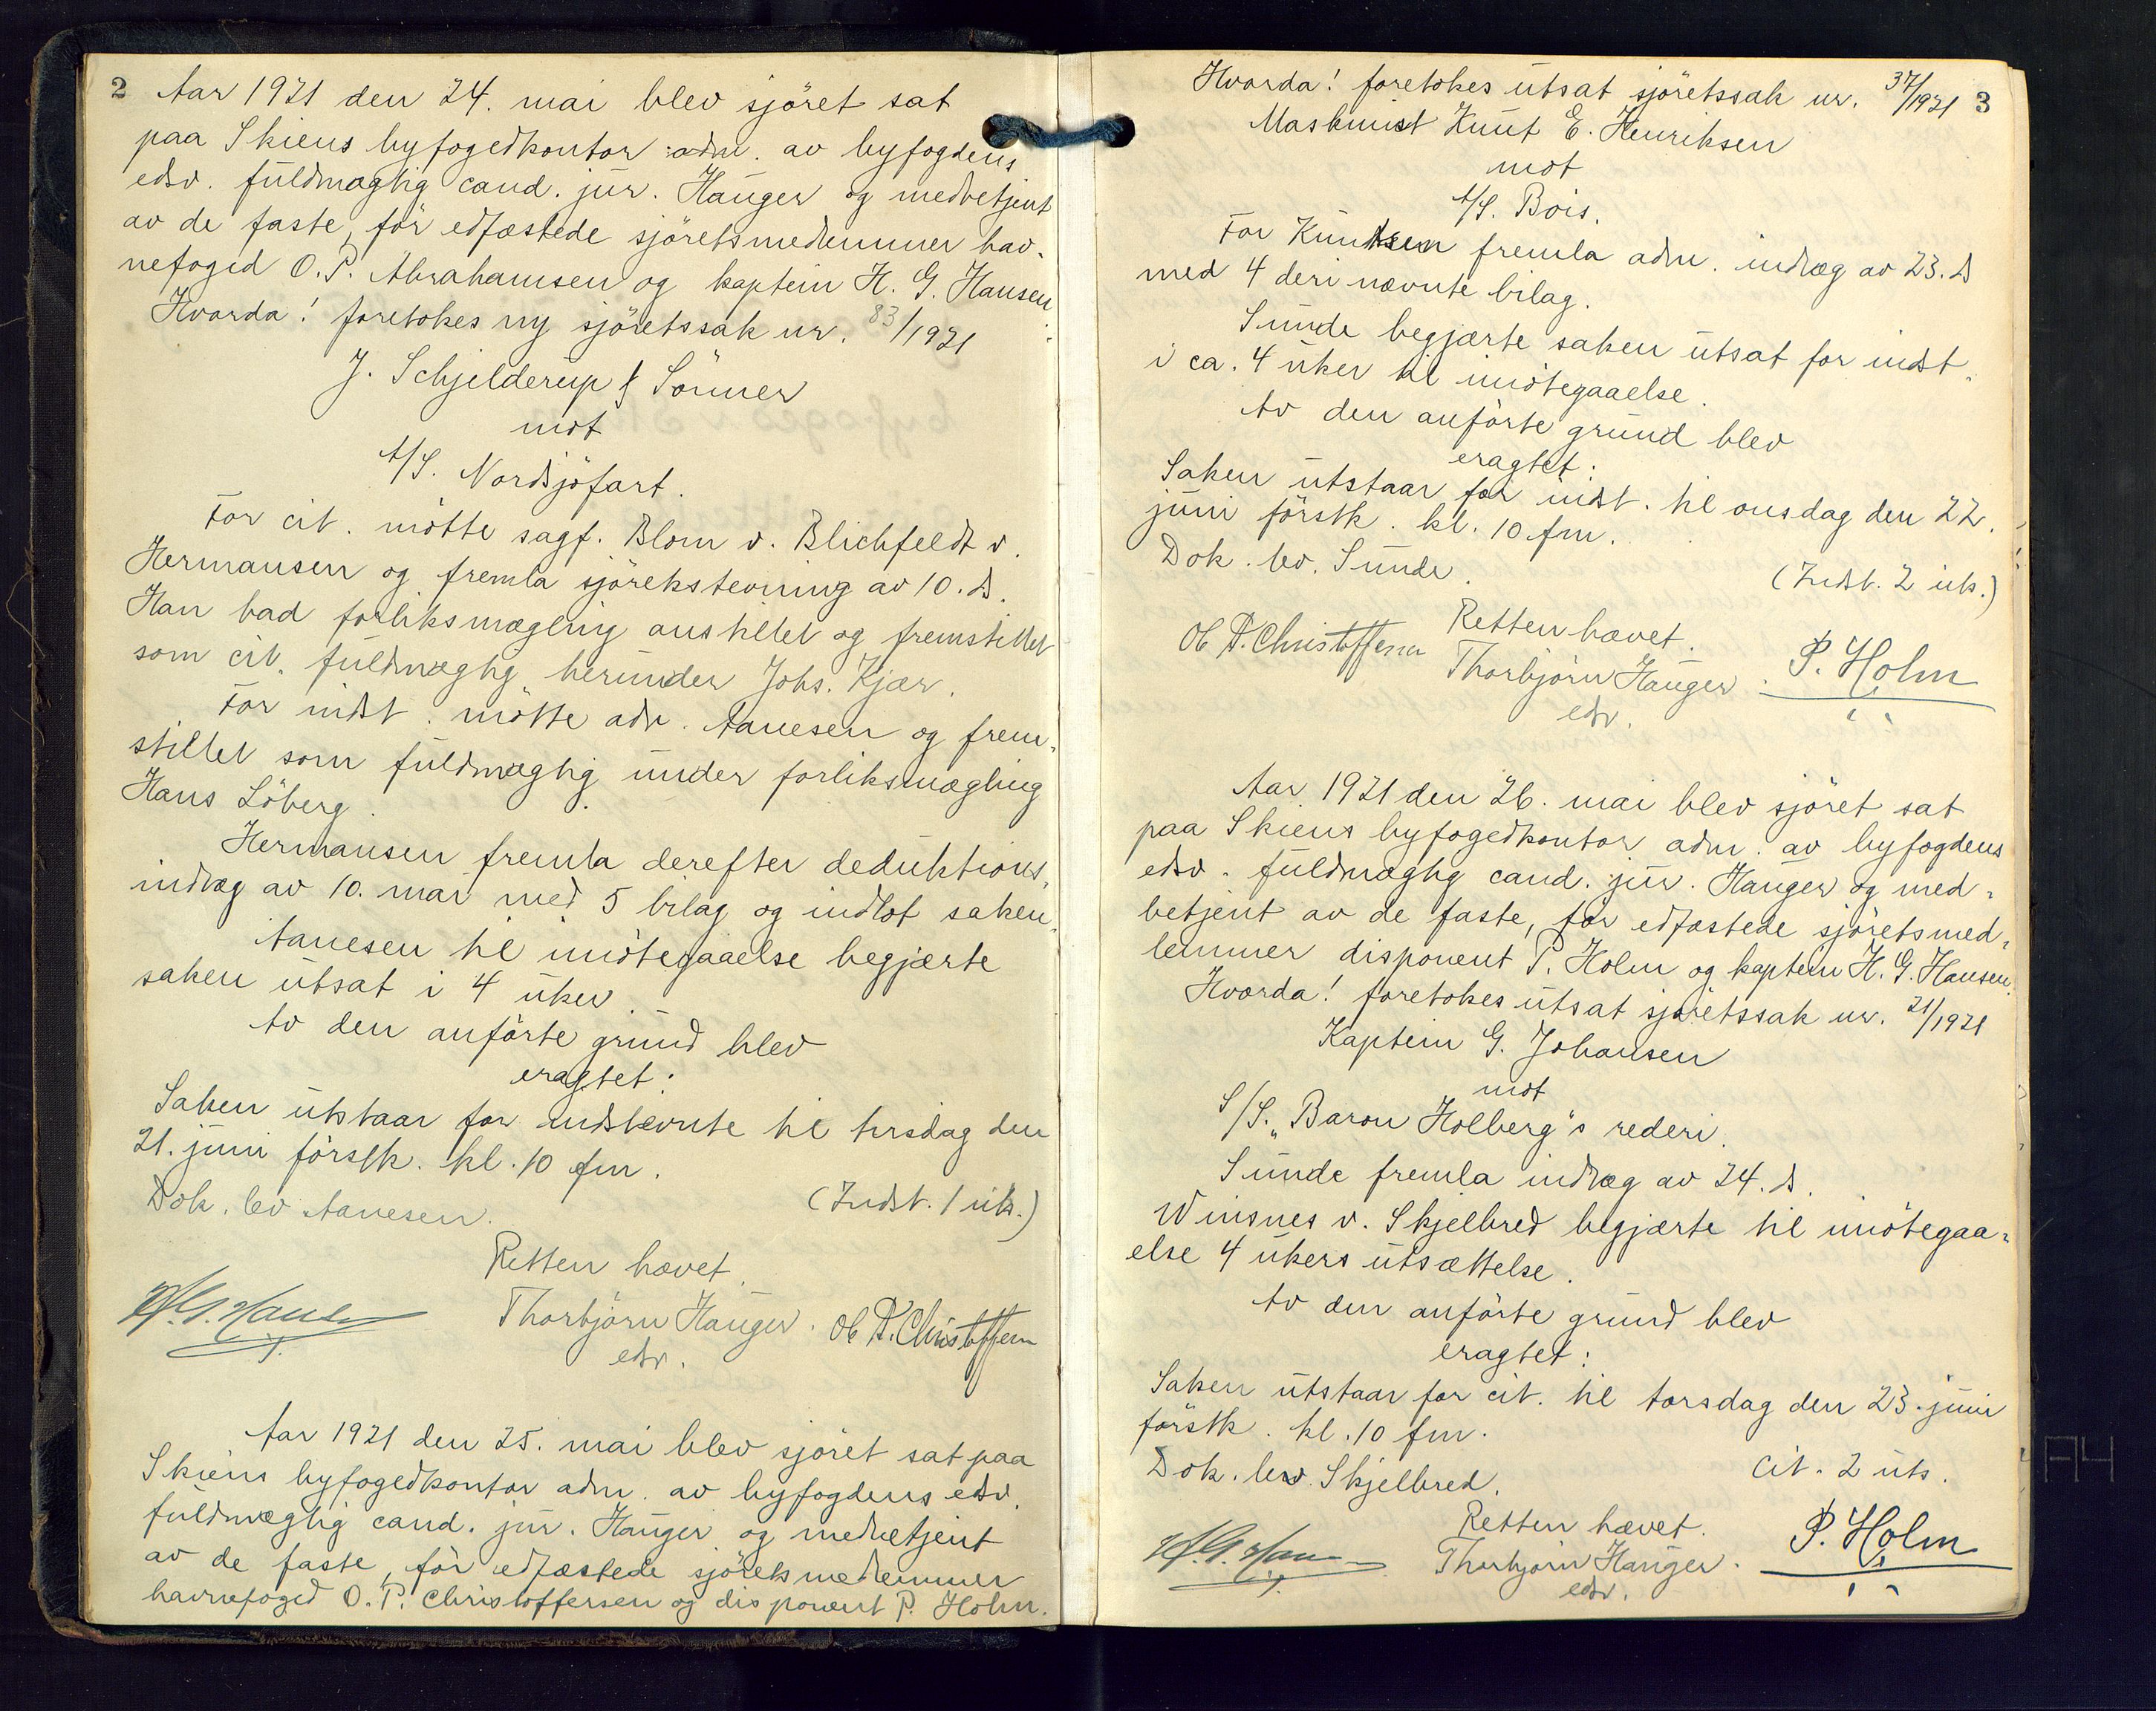 2 Aar 1921 den 24. mai blev sjöret sat
paa Skiens byfogedkontor adm. av byfogdens
edsv. fuldmægtig cand. jur. Hauger og medbetjent
av de faste, før edfæstede sjöretsmedlemmer hav-
nefoged O. P. Abrahamsen og kaptein H. G. Hansen.
Hvorda! foretokes ny sjöretssak nr. 83/1921
J. Schjelderup & Sönner
mot
A/S. Nordsjöfart.
For cit. mötte sagf. Blom v. Blichfeldt v.
Hermansen og fremla sjöretsstevning av 10. ds.
Han bad forliksmægling anstillet og fremstillet
som cit. fuldmægtig herunder Johs. Kjær.
For indst. mötte adv. Aanesen og frem-
stillet som fuldmægtig under forliksmægling
Hans Löberg.
Hermansen fremla derefter deduktions-
indlæg av 10. mai med 5 bilag og indlot saken.
Aanesen til imötegaaelse begjærte
saken utsat i 4 uker.
Av den anförte grund blev
eragtet:
Saken utstaar for indstevnte til tirsdag den
21. juni förstk. kl. 10 fm.
Dok. lev. Aanesen.
(Indst. 1 uts.)
Retten hævet.
H. G. Hansen
Thorbjörn Hauger.
edsv.
Ole P. Christoffersen
Aar 1921 den 25. mai blev sjöret sat paa
Skiens byfogedkontor adm. av byfogdens edsv.
fuldmægtig cand. jur. Hauger og medbetjent
av de faste, för edfæstede sjöretsmedlemmer
havnefoged O. P. Christoffersen og disponent P. Holm.
Hvorda! foretokes utsat sjöretssak nr. 37/1921 3
Maskinist Knut E. Henriksen
mot
A/S. Bois.
For Knutsen fremla adm. indlæg av 23. ds
med 4 deri nævnte bilag.
Sunde begjærte saken utsat for indst.
i ca. 4 uker til imötegaaelse.
Av den anförte grund blev
eragtet:
Saken utstaar for indst. til onsdag den 22.
juni förstk. kl. 10 fm.
Dok. lev. Sunde.
(Indst. 2 uts.)
Retten hævet.
Ole P. Christoffersen
Thorbjörn Hauger.
edsv.
P. Holm
Aar 1921 den 26. mai blev sjöret sat
paa Skiens byfogedkontor adm. av byfogdens
edsv. fuldmægtig cand. jur. Hauger og med-
betjent av de faste, før edfæstede sjöretsmed-
lemmer disponent P. Holm og kaptein H. G. Hansen.
Hvorda! foretokes utsat sjöretssak nr. 21/1921
Kaptein G. Johansen
mot
S/S. "Baron Holberg"s rederi.
Sunde fremla indlæg av 24. ds.
Winsnes v. Skjelbred begjærte til imötegaa-
else 4 ukers utsættelse.
Av den anförte grund blev
eragtet:
Saken utstaar for cit. til torsdag den 23. juni
förstk. kl. 10 fm.
Dok. lev. Skjelbred.
Cit. 2 uts.
Retten hævet.
H. G. Hansen
Thorbjörn Hauger.
edsv.
P. Holm